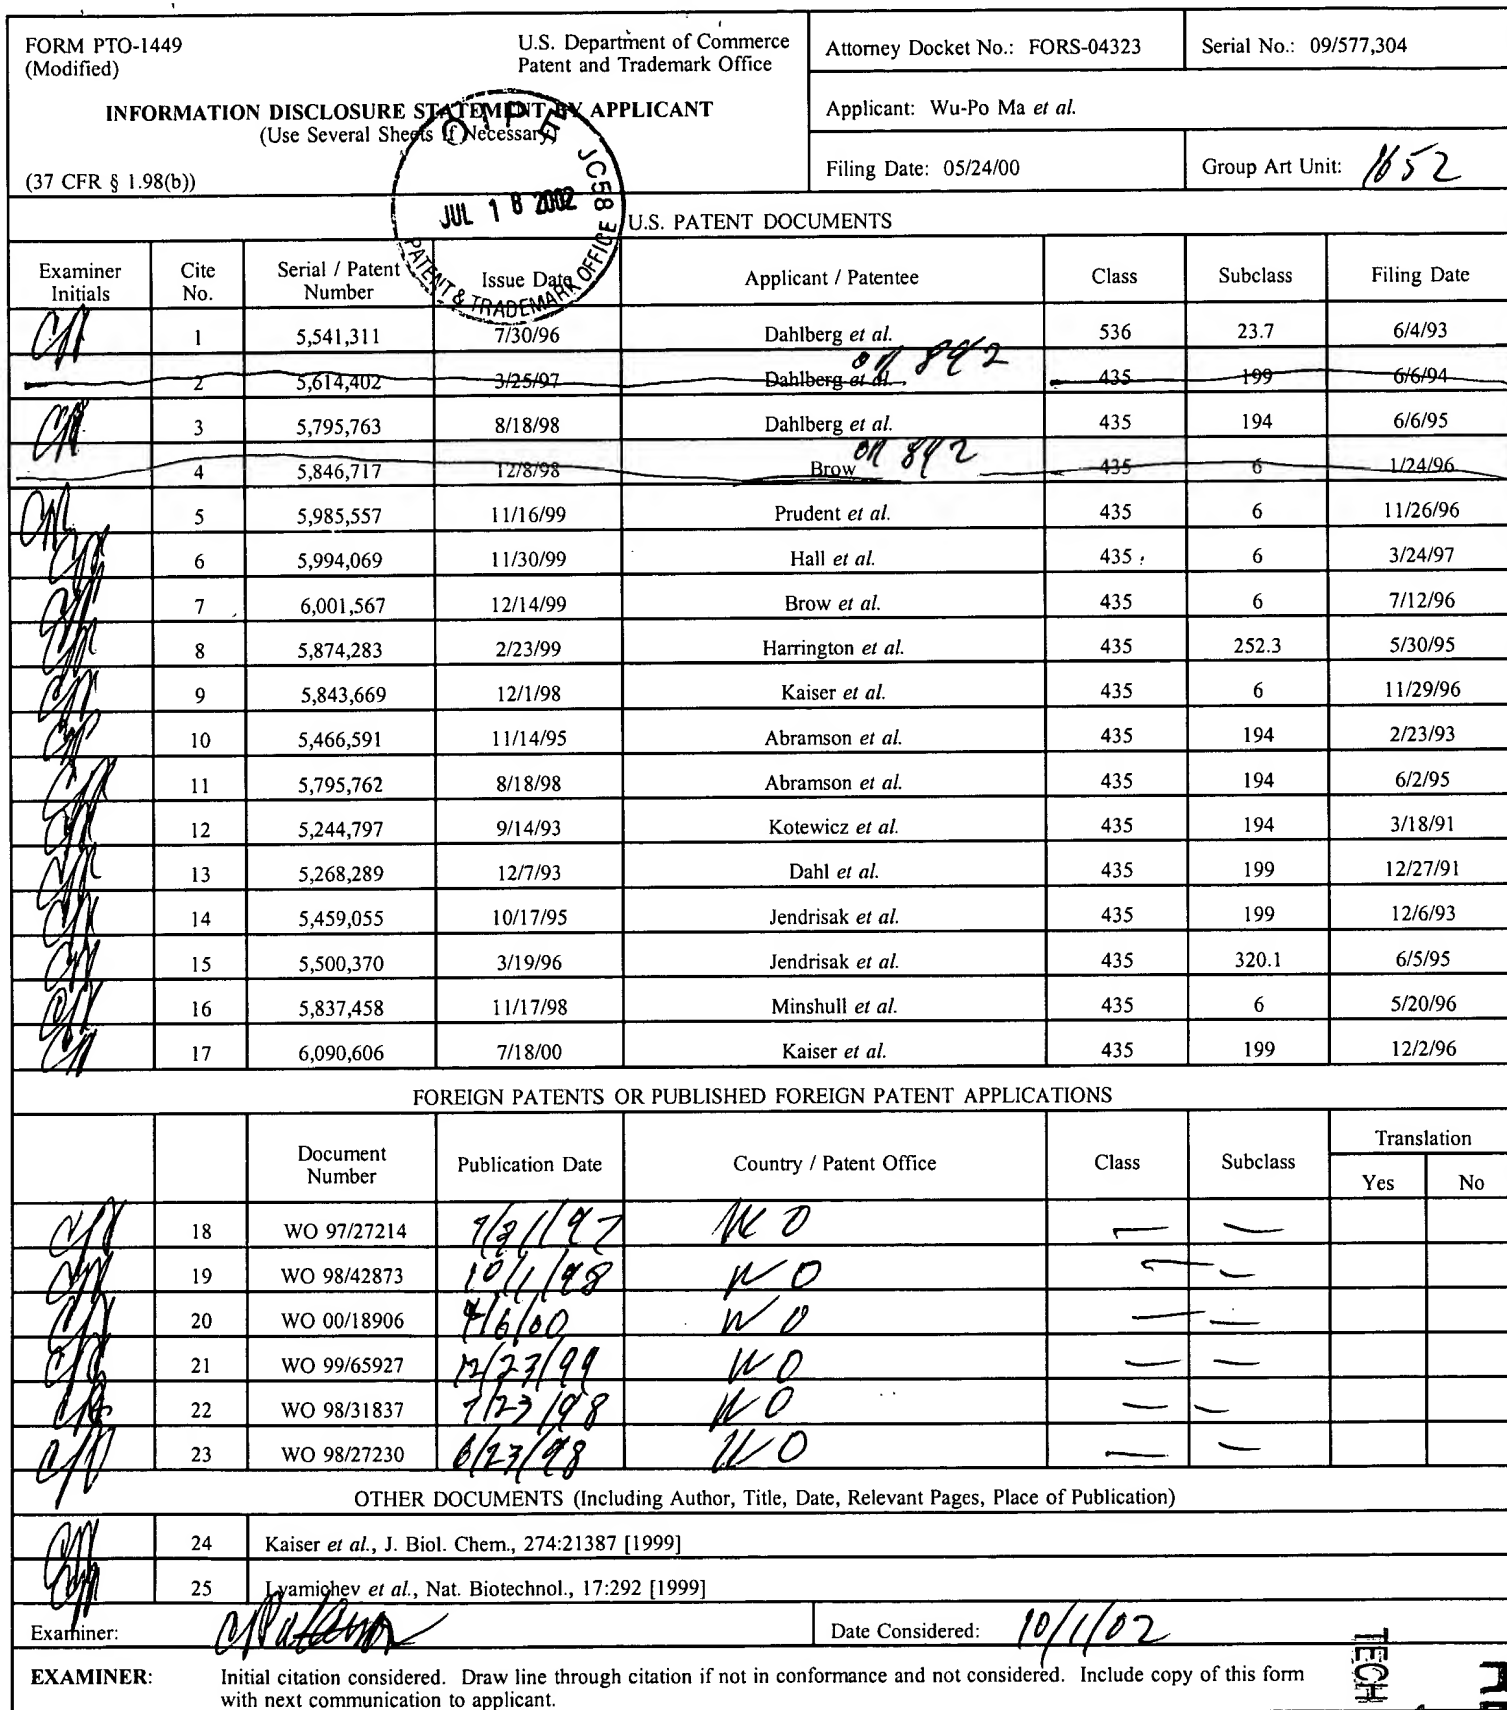 FORM PTO-1449
(Modified)
U.S. Department of Commerce
Patent and Trademark Office
Attorney Docket No.: FORS-04323
Serial No.: 09/577,304
INFORMATION DISCLOSURE STATEMENT BY APPLICANT
(Use Several Sheets If Necessary)
(37 CFR § 1.98(b))
Applicant: Wu-Po Ma et al.
Filing Date: 05/24/00
Group Art Unit: 1652
OIPE JC58
JUL 18 2002
PATENT & TRADEMARK OFFICE
U.S. PATENT DOCUMENTS
Examiner Initials Cite No. Serial / Patent Number Issue Date Applicant / Patentee Class Subclass Filing Date
1 5,541,311 7/30/96 Dahlberg et al. 536 23.7 6/4/93
2 5,614,402 3/25/97 Dahlberg et al. on 892 435 199 6/6/94
3 5,795,763 8/18/98 Dahlberg et al. 435 194 6/6/95
4 5,846,717 12/8/98 Brow on 892 435 6 1/24/96
5 5,985,557 11/16/99 Prudent et al. 435 6 11/26/96
6 5,994,069 11/30/99 Hall et al. 435 6 3/24/97
7 6,001,567 12/14/99 Brow et al. 435 6 7/12/96
8 5,874,283 2/23/99 Harrington et al. 435 252.3 5/30/95
9 5,843,669 12/1/98 Kaiser et al. 435 6 11/29/96
10 5,466,591 11/14/95 Abramson et al. 435 194 2/23/93
11 5,795,762 8/18/98 Abramson et al. 435 194 6/2/95
12 5,244,797 9/14/93 Kotewicz et al. 435 194 3/18/91
13 5,268,289 12/7/93 Dahl et al. 435 199 12/27/91
14 5,459,055 10/17/95 Jendrisak et al. 435 199 12/6/93
15 5,500,370 3/19/96 Jendrisak et al. 435 320.1 6/5/95
16 5,837,458 11/17/98 Minshull et al. 435 6 5/20/96
17 6,090,606 7/18/00 Kaiser et al. 435 199 12/2/96
FOREIGN PATENTS OR PUBLISHED FOREIGN PATENT APPLICATIONS
Document Number Publication Date Country / Patent Office Class Subclass Translation
Yes No
18 WO 97/27214 WO — —
19 WO 98/42873 10/1/98 WO — —
20 WO 00/18906 4/6/00 WO — —
21 WO 99/65927 12/23/99 WO — —
22 WO 98/31837 7/23/98 WO — —
23 WO 98/27230 6/23/98 WO — —
OTHER DOCUMENTS (Including Author, Title, Date, Relevant Pages, Place of Publication)
24 Kaiser et al., J. Biol. Chem., 274:21387 [1999]
25 Lyamichev et al., Nat. Biotechnol., 17:292 [1999]
Examiner:
Date Considered: 10/1/02
EXAMINER: Initial citation considered. Draw line through citation if not in conformance and not considered. Include copy of this form
with next communication to applicant.
TECH